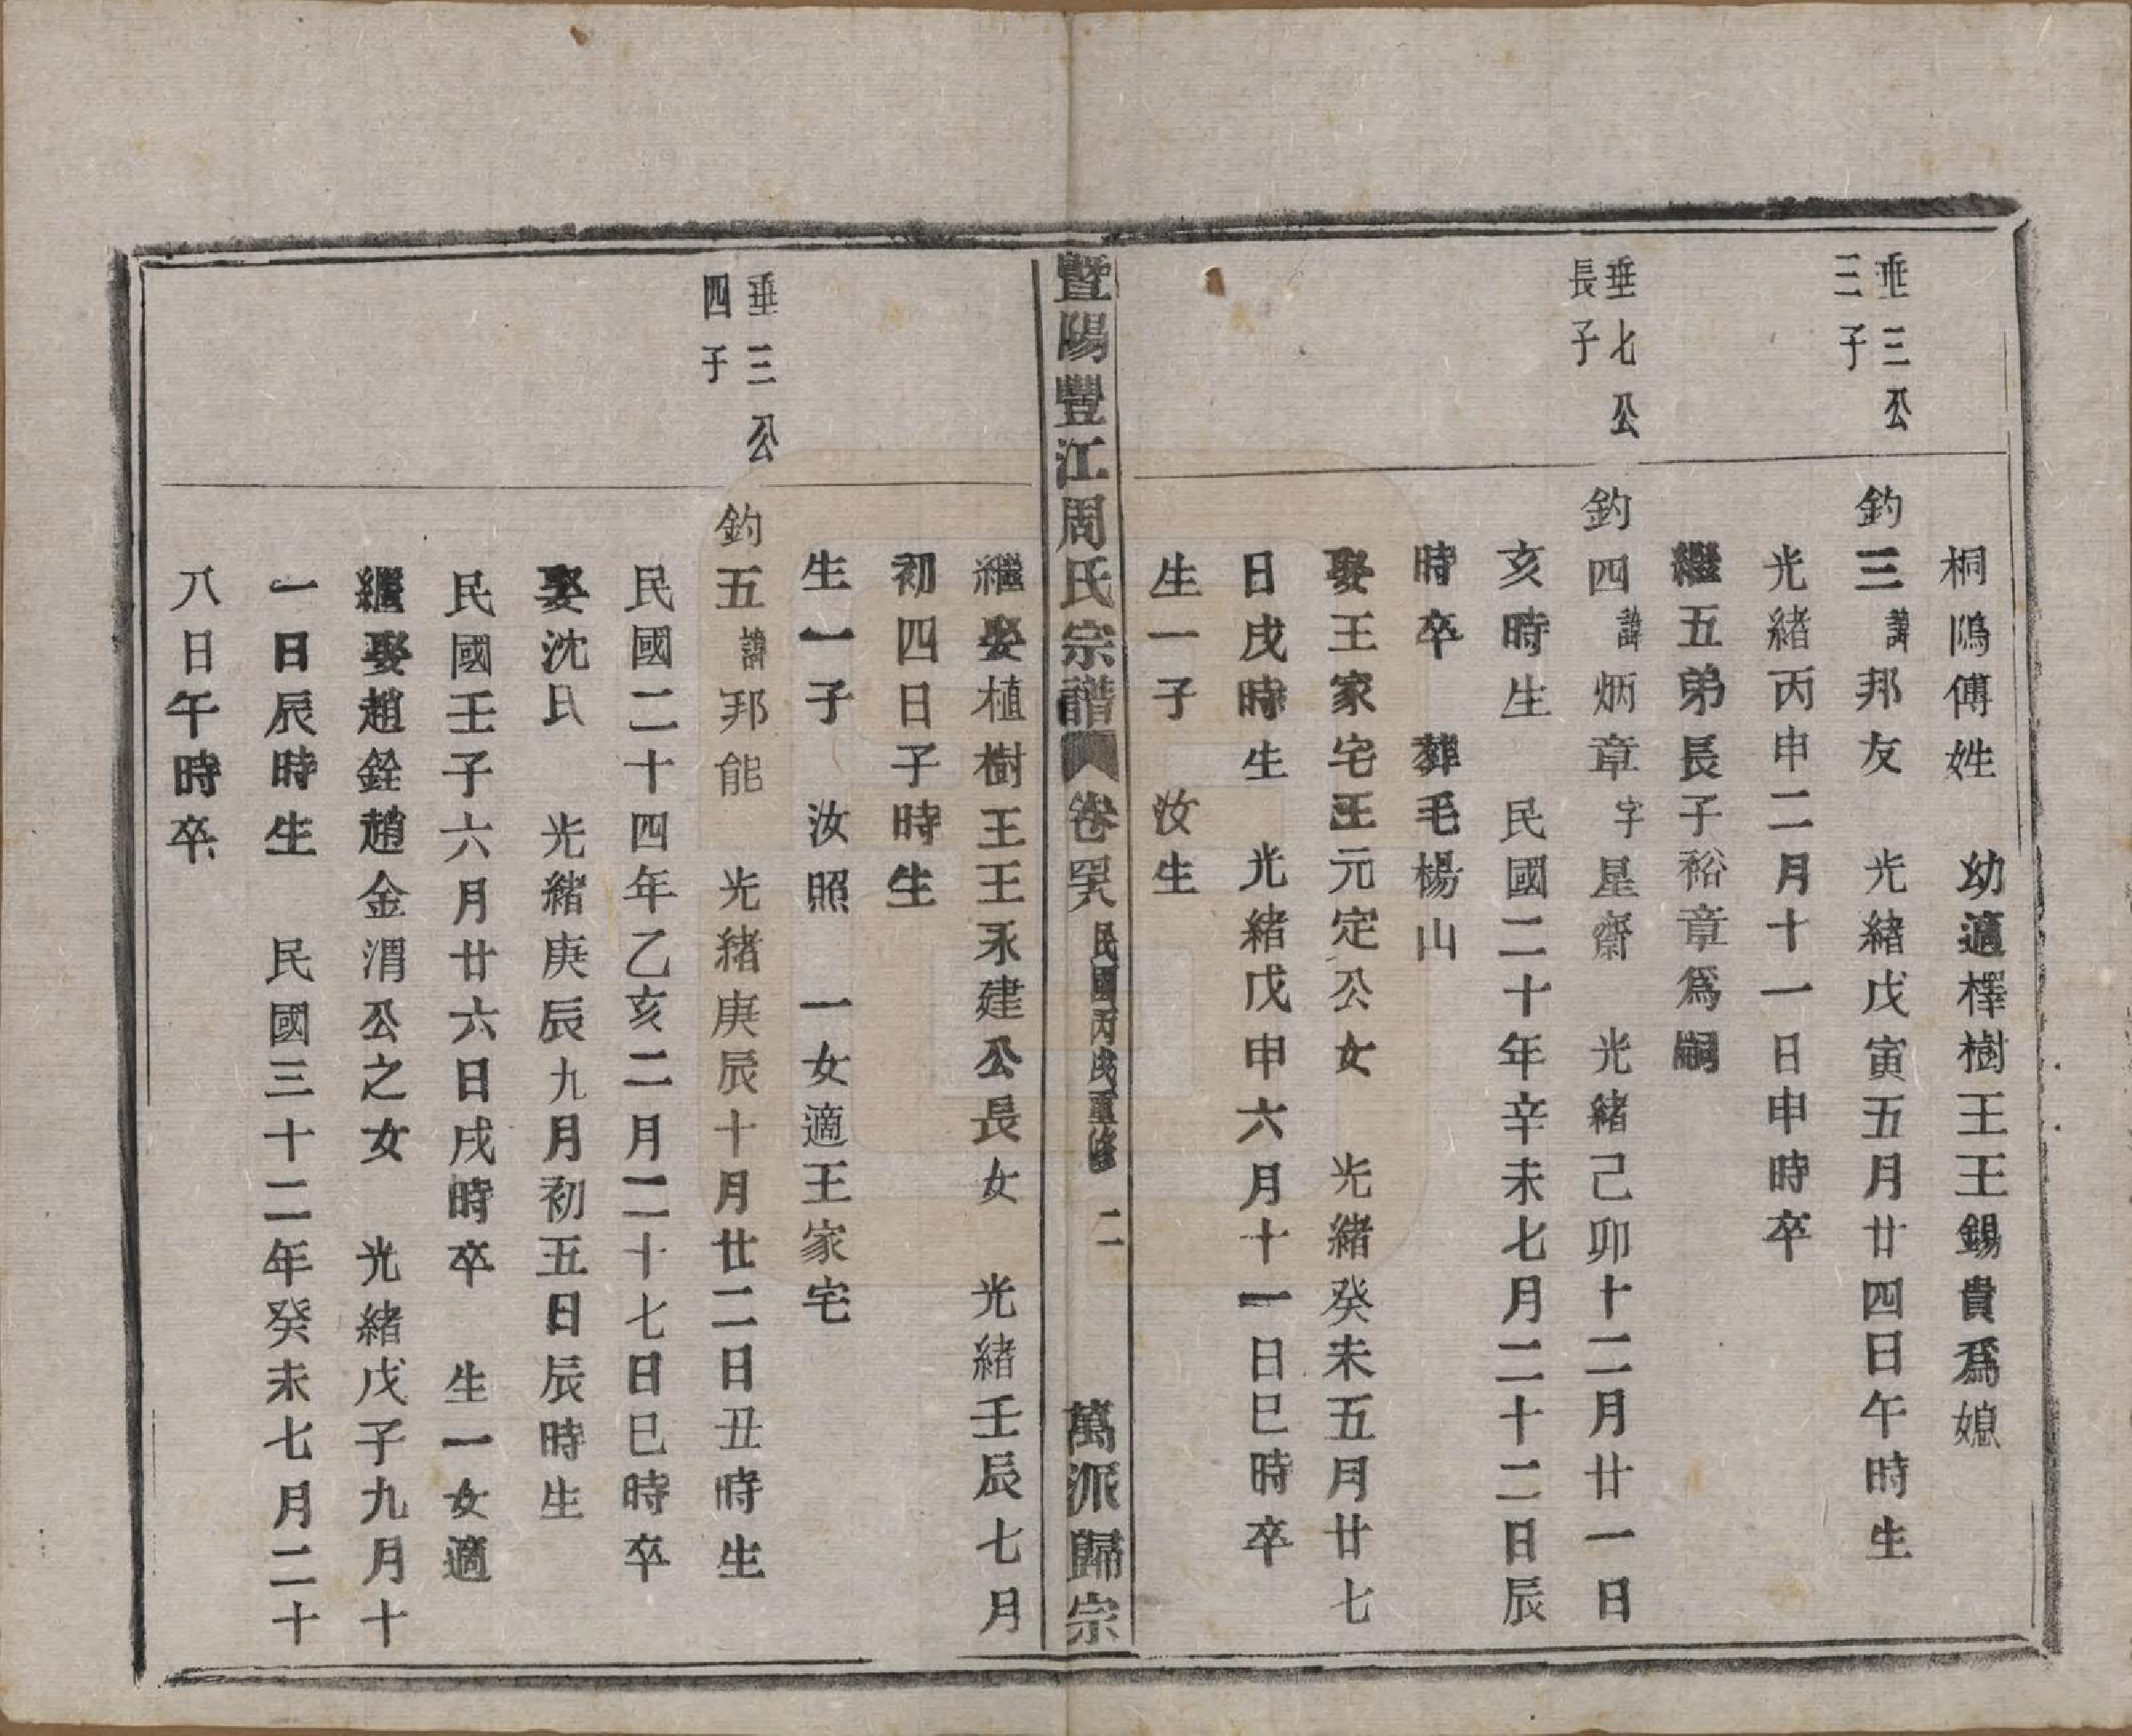 桐隖傅姓　幼適檡樹王王錫貴爲媳
垂三公
三子
釣三諱邦友　光緒戊寅五月廿四日午時生
光緒丙申二月十一日申時卒
繼五弟長子裕章爲嗣
垂七公
長子
釣四諱炳章字星齋　光緒己卯十二月廿一日
亥時生　民國二十年辛未七月二十二日辰
時卒　葬毛楊山
娶王家宅王元定公女　光緒癸未五月廿七
日戌時生　光緒戊申六月十一日巳時卒
生一子　汝生
暨陽豐江周氏宗譜　卷㗊　民國丙戌重修　二　萬派歸宗
繼娶植樹王王永建公長女　光緒壬辰七月
初四日子時生
生一子　汝照　一女適王家宅
垂三公
四子
釣五諱邦能　光緒庚辰十月廿二日丑時生
民國二十四年乙亥二月二十七日巳時卒
娶沈氏　光緒庚辰九月初五日辰時生
民國壬子六月廿六日戌時卒　生一女適
繼娶趙銓趙金渭公之女　光緒戊子九月十
一日辰時生　民國三十二年癸未七月二十
八日午時卒